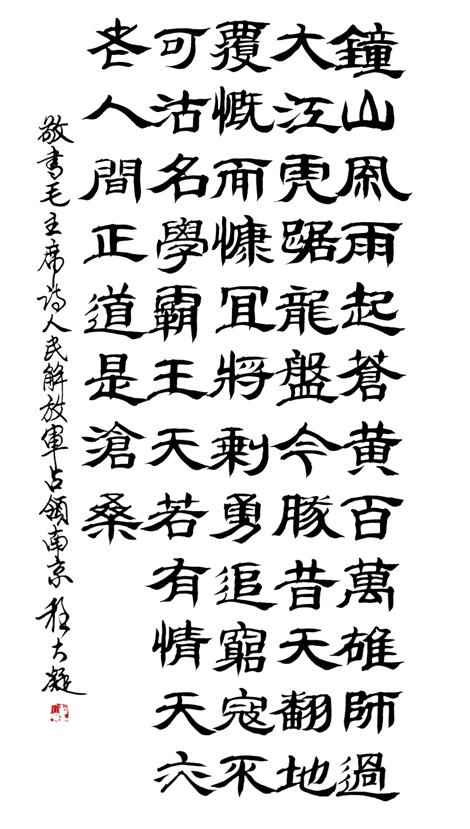 鐘山風雨起蒼黄百萬雄師過
大江虎踞龍盤今勝昔天翻地
覆慨而慷宜將剩勇追窮寇不
可沽名學霸王天若有情天亦
老人間正道是滄桑
敬書毛主席詩人民解放軍占領南京 程大凝